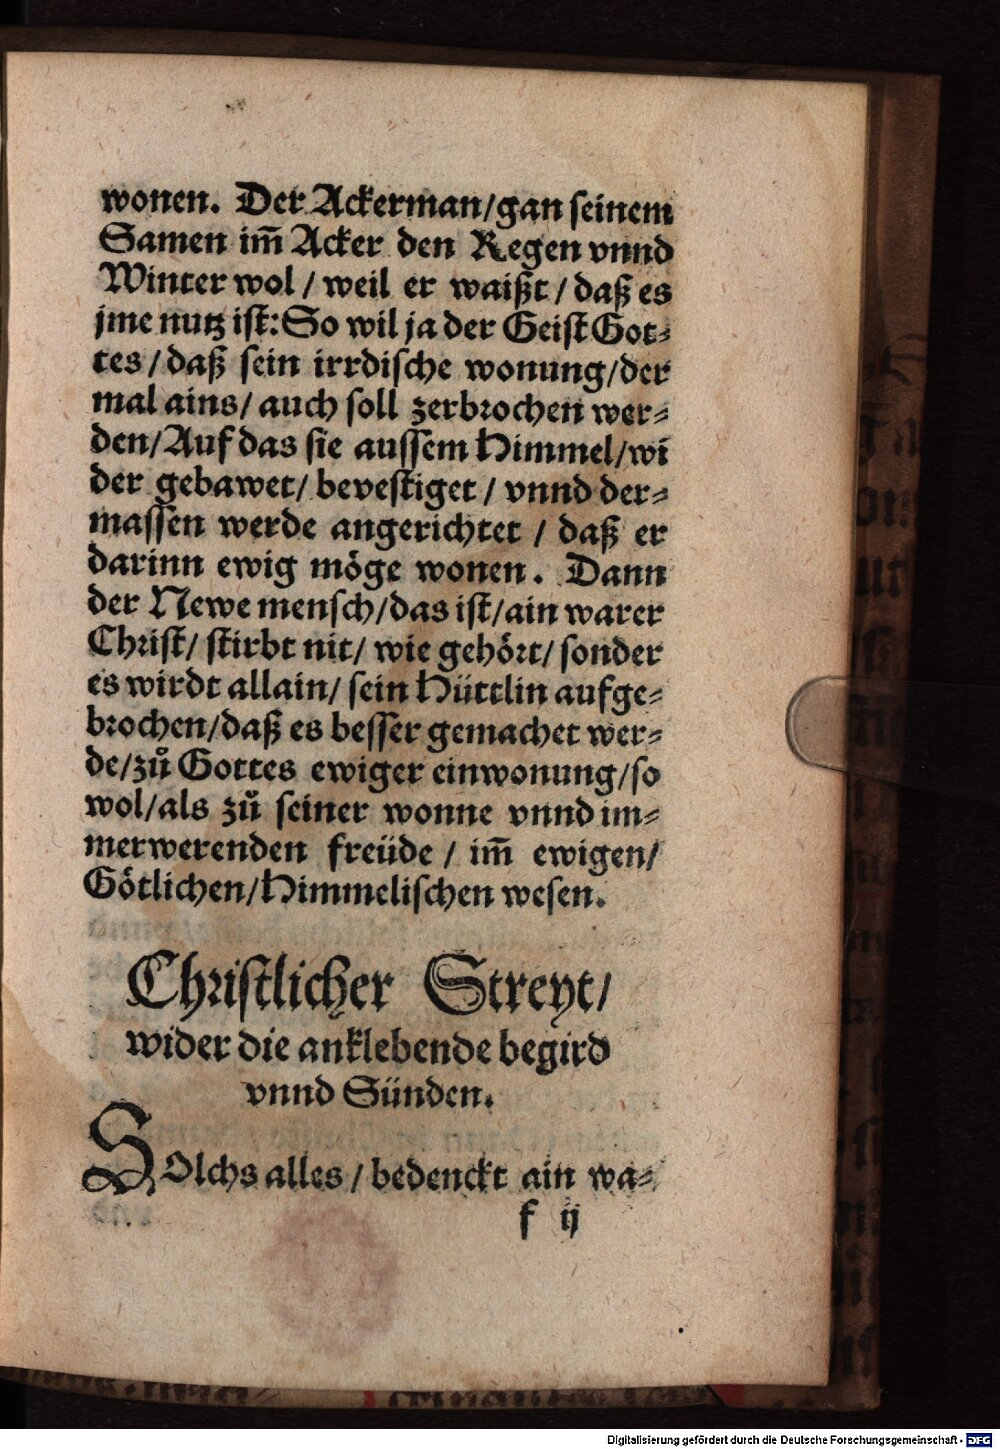 wonen. Der Ackerman/gan seinem
Samen im̄ Acker den Regen vnnd
Winter wol / weil er waißt / daß es
jme nutz ist: So wil ja der Geist Got⸗
tes / daß sein irrdische wonung/der
mal ains/ auch soll zerbrochen wer⸗
den/Auf das sie aussem Himmel/wi
der gebawet/ bevestiget / vnnd der⸗
massen werde angerichtet / daß er
darinn ewig möge wonen. Dann
der Newe mensch/das ist/ain warer
Christ/ stirbt nit/ wie gehört/ sonder
es wirdt allain/ sein Hüttlin aufge⸗
brochen/daß es besser gemachet wer⸗
de/zů Gottes ewiger einwonung/so
wol/als zů seiner wonne vnnd im⸗
merwerenden freüde / im̄ ewigen/
Götlichen/Himmelischen wesen.
Christlicher Streyt/
wider die anklebende begird
vnnd Sünden.
SOlchs alles / bedenckt ain wa⸗
f ij
Digitalisierung gefördert durch die Deutsche Forschungsgemeinschaft - DFG